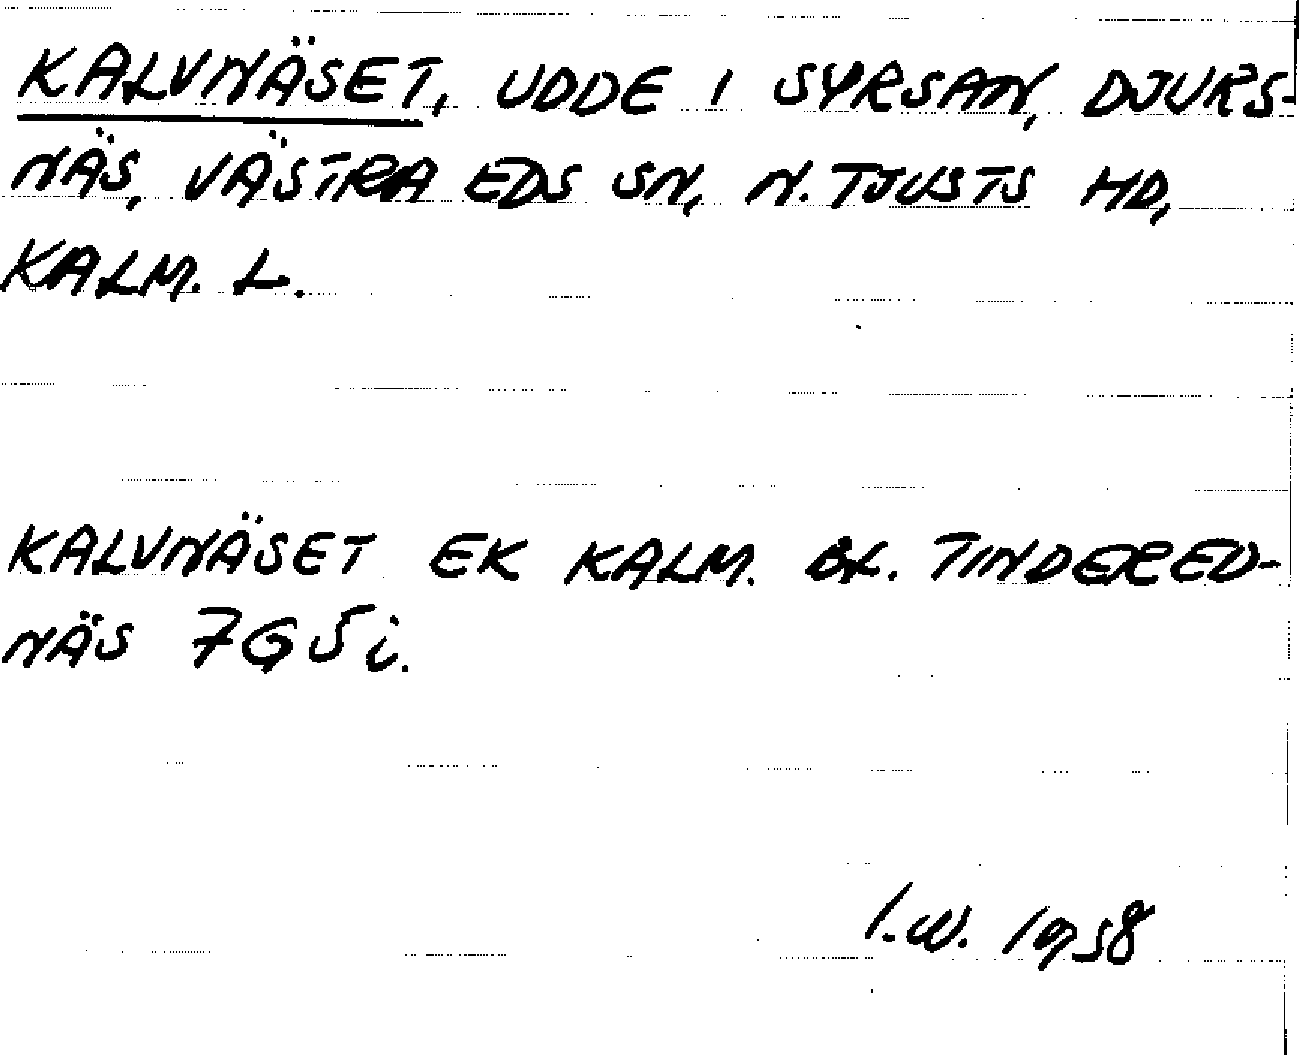 KALVNÄSET, UDDE I SYRSAN, DJURS-
NÄS, VÄSTRA EDS SN, N. TJUSTS HD,
KALM. L.
KALVNÄSET EK KALM. BL. TINDERED-
NÄS 7G5i.
I.W. 1958